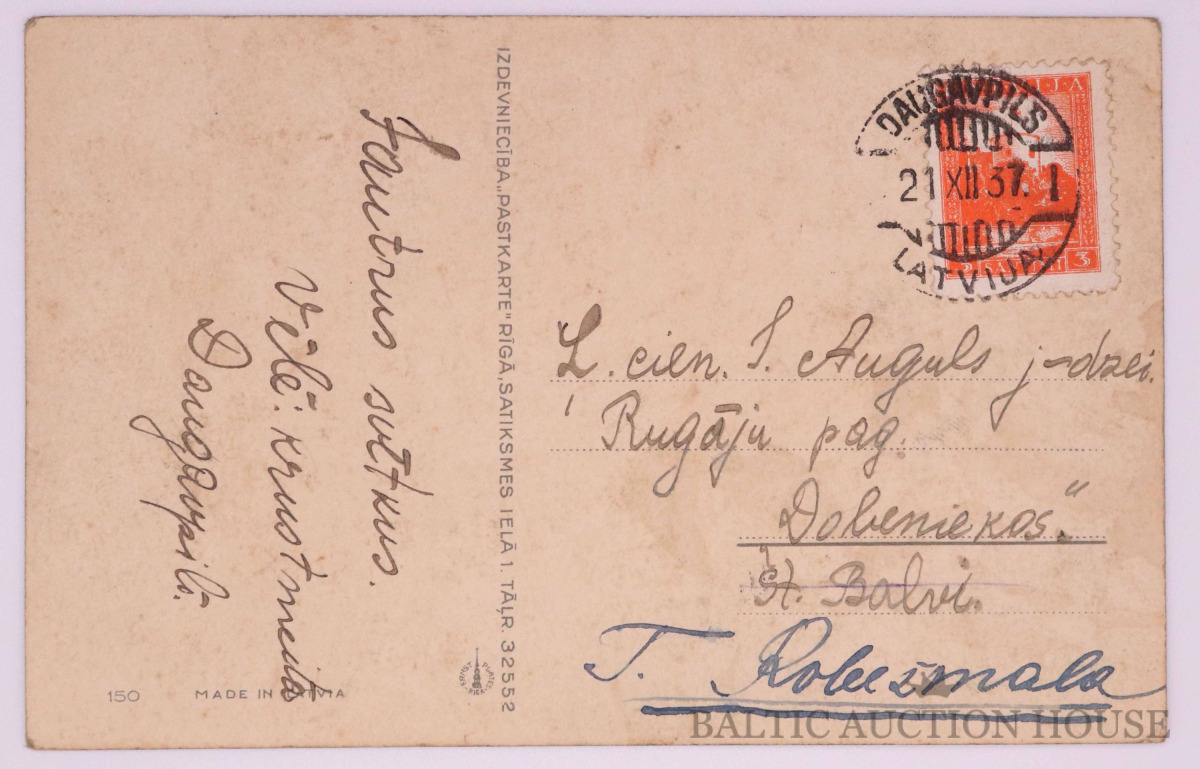 Jautrus svētkus.
Vēlē: krustmeita
Daugavpilī.
IZDEVNIECĪBA „PASTKARTE" RĪGĀ, SATIKSMES IELĀ 1. TĀĻR. 32552
150 MADE IN LATVIA
DAUGAVPILS
21 XII 37. 1
LATVIJA
3 3
Ļ. cien. I. Auguls j-dzei.
Rugāju pag.
Dobeniekos."
st. Balvi.
T. Robežmala
BALTIC AUCTION HOUSE